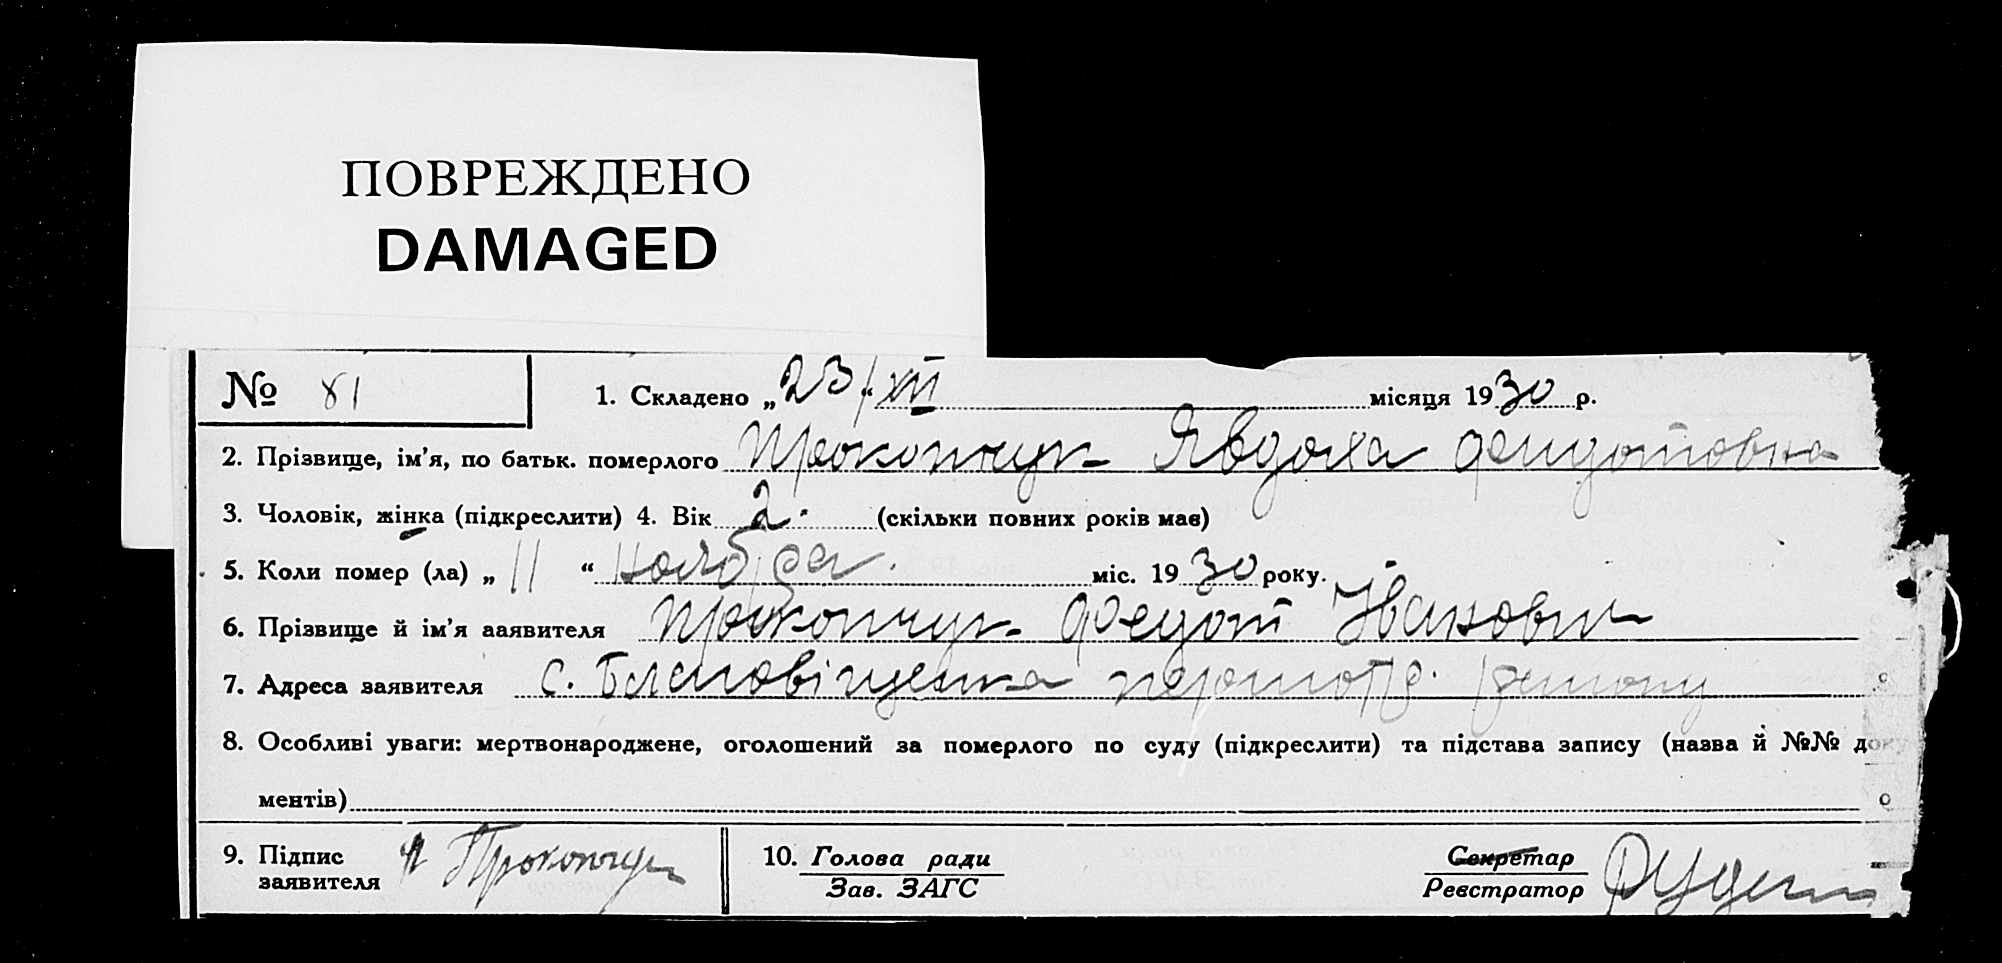 ПОВРЕЖДЕНО
DAMAGED
№ 81
1. Складено „23/XII“ місяця 1930 р.
2. Прізвище, ім’я, по батьк. померлого Прокопчук Явдоха Фендотовна
3. Чоловік, жінка (підкреслити) 4. Вік 2. (скільки повних років має)
5. Коли помер (ла) „11“ ноября. міс. 1930 року.
6. Прізвище й ім’я заявителя Прокопчук Федот Іванович
7. Адреса заявителя с. Благовіщенка
8. Особливі уваги: мертвонароджене, оголошений за померлого по суду (підкреслити) та підстава запису (назва й №№ доку
ментів)
9. Підпис Прокопчук
заявителя
10. Голова ради
Зав. ЗАГС
Секретар
Реєстратор